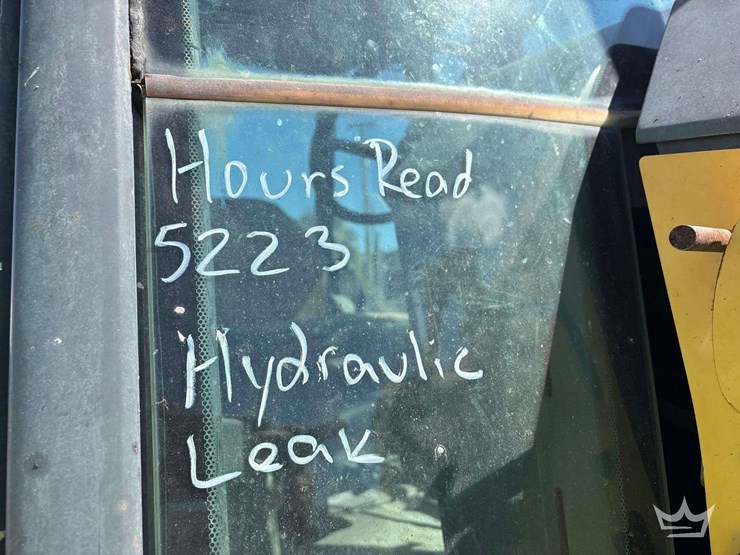 Hours Read
5223
Hydraulic
Leak